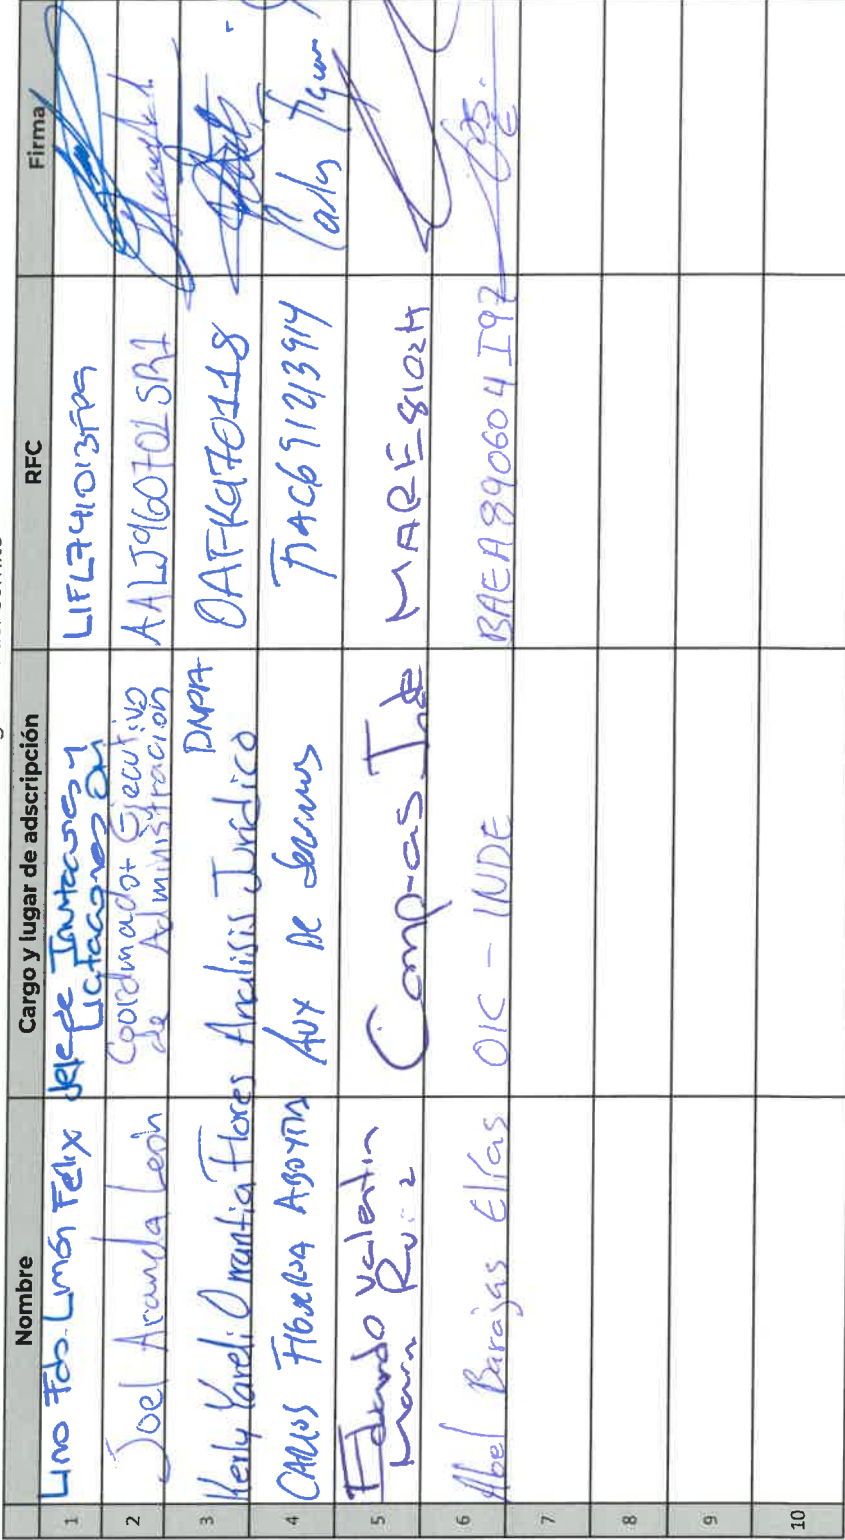 Nombre Cargo y lugar de adscripción RFC Firma
1 Lino Fco. Limón Felix Jefe de Invitaciones y LIFL741013FP9
Licitaciones OM
2 Joel Aranda León Coordinador Ejecutivo AALJ960701SR1
de Administración
3 Kerly Yareli Omantia Flores Analisis Jurídico DNPA OAFK970118
4 CARLOS FIGUEROA ABOYTIA AUX DE Servicios FIAC691213914 Carlos Figueroa
5 Eduardo Valentin Compras Inde MARE81024
Marin Ruiz
6 Abel Barajas Elías OIC - INDE BAEA890604I97
7
8
9
10